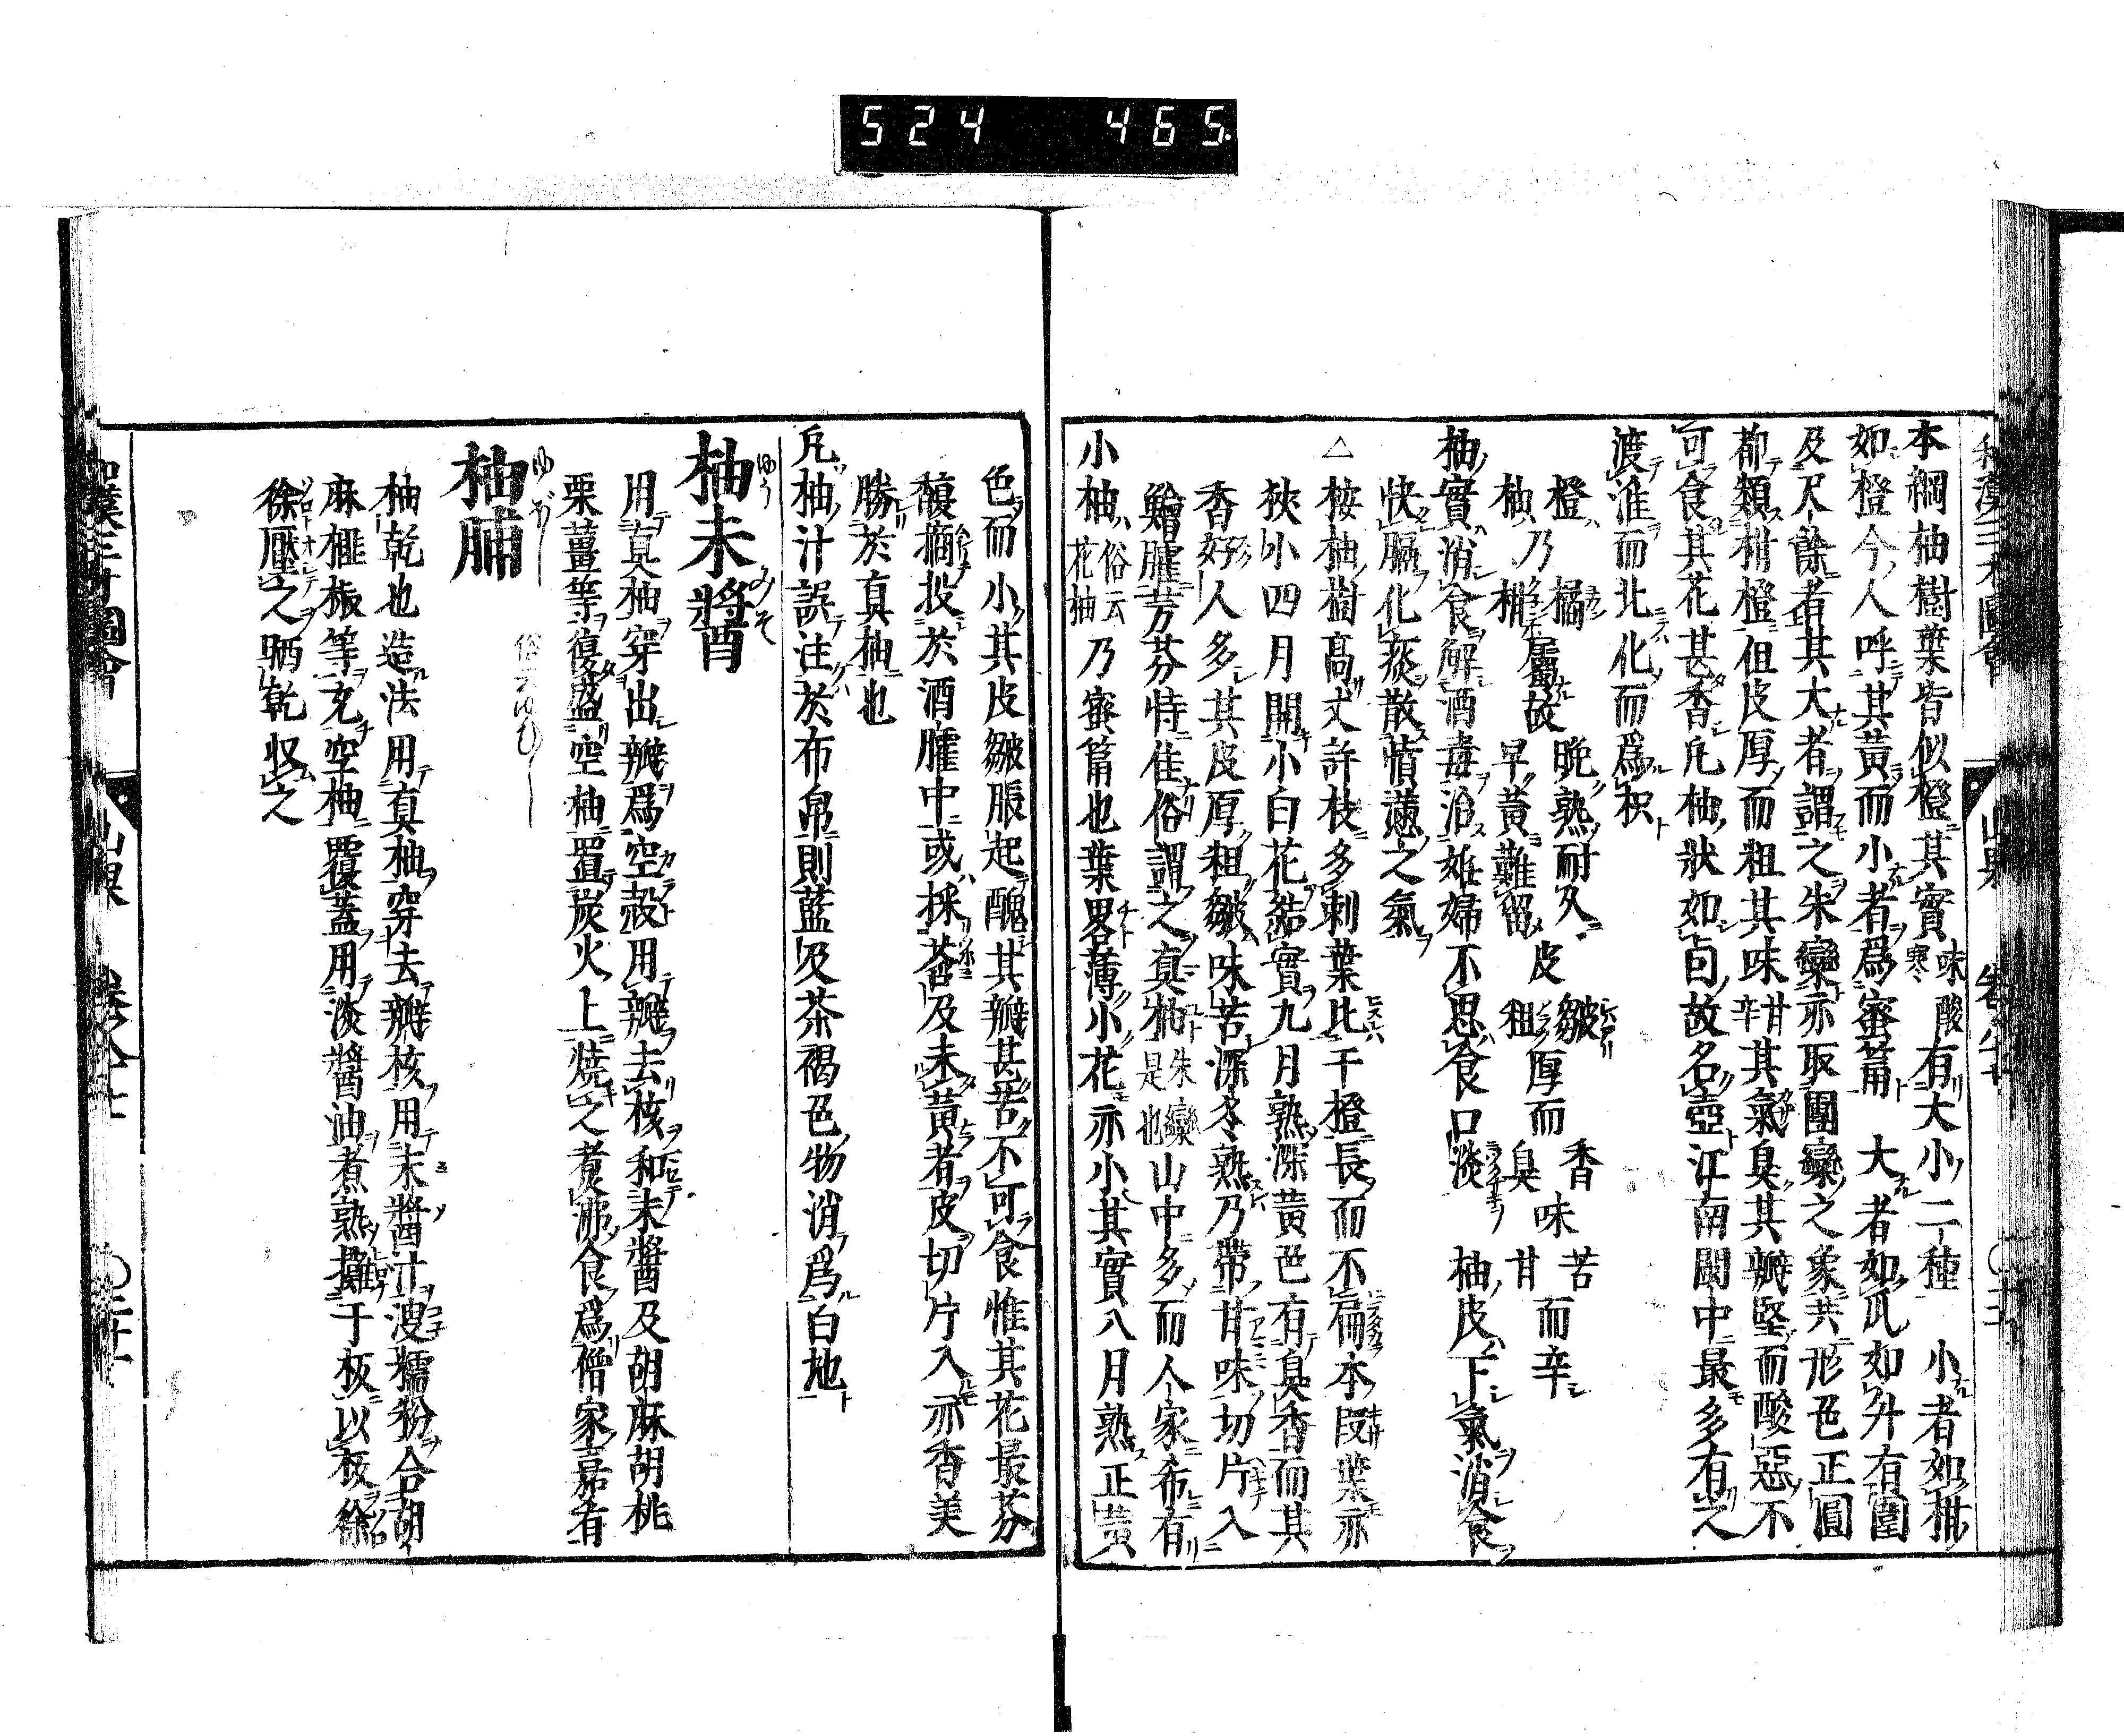 524 465
本綱柚樹葉皆似橙其實味酸寒有大小二種 小者如柑
如橙今人呼其黃而小者爲蜜筩 大者如瓜如升有圍
及尺餘者其大者謂之朱欒亦取團欒之象共形色正圓
都類柑橙但皮厚而粗其味甘辛其氣臭其瓣堅而酸惡不
可食其花甚香凡柚狀如卣故名壺江南閩中最多有之
渡淮而北化而爲枳
橙ハ橘 晩熟耐久 皮皺厚而香 味苦而辛
柚ハ乃柑屬故早黃難留 粗 臭 甘
柚實消食解酒毒治妊婦不思食口淡 柚皮下氣消食
快膈化痰散憤懣之氣
△ 桉柚樹髙丈許枝多刺葉比于橙長而不扁本段葉亦
狹小四月開小白花結實九月熟深黃色有臭香而其
香好人多其皮厚粗皺味苦深冬熟乃帶甘味切片入
鱠臛芳芬特佳俗謂之真柚朱欒是也山中多而人家希有
小柚俗云花柚乃蜜筩也葉畧薄小花亦小其實八月熟正黃
色而小其皮皺脹起醜其瓣甚苦不可食惟其花最芬
馥摘投於酒臛中或採莟及未黃者皮切片入亦香美
勝於真柚也
凡柚汁誤注於布帛則藍及茶褐色物消爲白地
柚未醬 ゆうみそ
用真柚穿出瓣爲空殻用瓣去核和未醬及胡麻胡桃
栗薑等復盛空柚置炭火上燒之煑沸食爲僧家嘉肴
柚脯 ゆぼし
俗云ゆむし
柚乾也造法用真柚穿去瓣核用未醬汁溲糯粉合胡
麻榧板等充空柚覆蓋用淡醬油煮熟攤于板以板徐
徐壓之晒乾收之
和漢三才圖會 山果 卷八十七